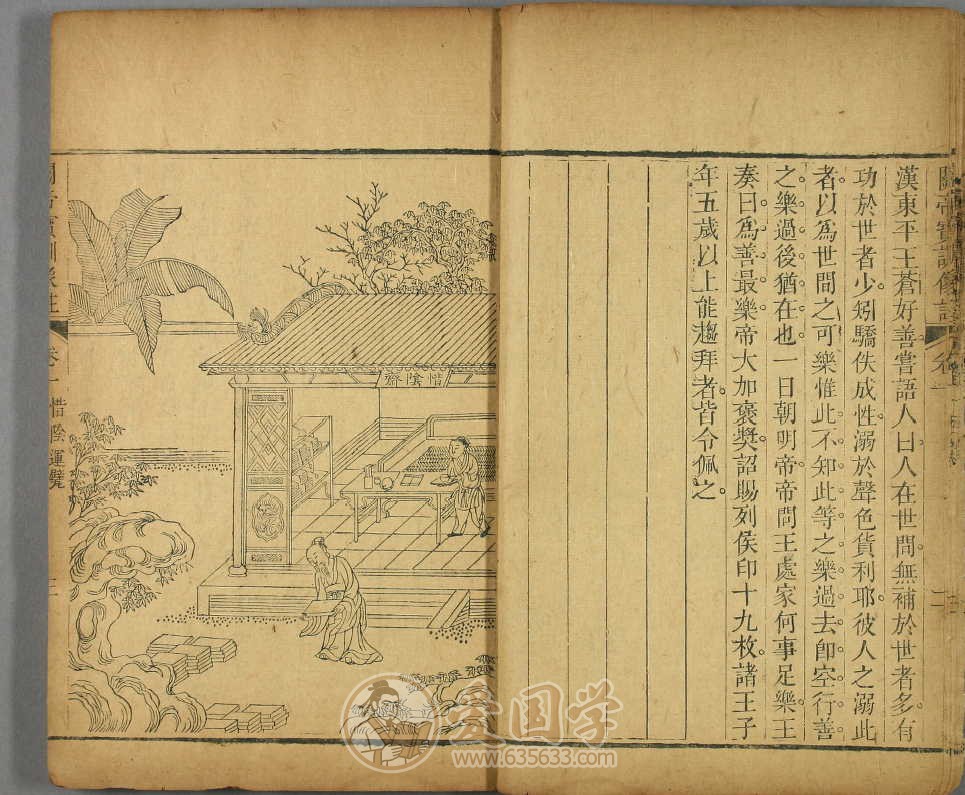 漢東平王蒼好善嘗語人曰人在世間無補於世者多有
功於世者少矧驕佚成性溺於聲色貨利耶彼人之溺此
者以為世間之可樂惟此不知此等之樂過去卽空行善
之樂過後猶在也一日朝明帝帝問王處家何事足樂王
奏曰為善最樂帝大加褒獎詔賜列侯印十九枚諸王子
年五歲以上能趨拜者皆令佩之
惜陰齋
卷一 惜陰運甓
爱国学
www.635633.com